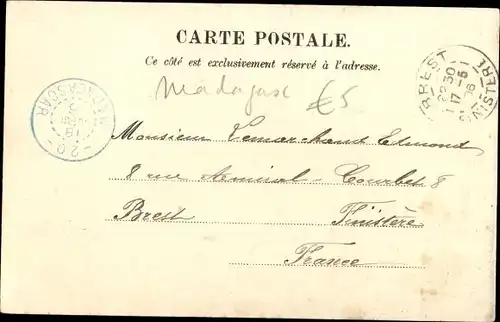 CARTE POSTALE.
Ce côté est exclusivement réservé à l'adresse.
Madagasc €5
MADAGASCAR
BREST
FINISTÈRE
Monsieur Lemarchand Edmond
8 rue Amiral-Courbet 8
Brest Finistère
France